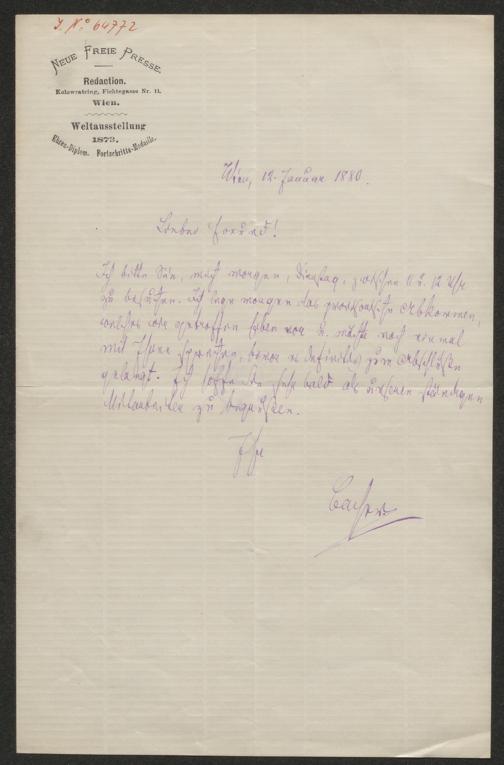 I. No 64772
NEUE FREIE PRESSE.
Redaction.
Kolowratring, Fichtegasse Nr. 11.
Wien.
Weltausstellung
1873.
Ehren-Diplom. Fortschritts-Medaille.
Wien, 12. Januar 1880.
Lieber Freund!
Ich bitte Sie, mich morgen, Dienstag, zwischen 11 u. 12 Uhr
zu besuchen. Ich lege morgen das provisorische Abkommen,
welches wir getroffen haben vor u. möchte noch einmal
mit Ihnen sprechen, bevor es definitiv zum Abschlusse
gelangt. Ich hoffe Sie sehr bald als unseren ständigen
Mitarbeiter zu begrüßen.
Ihr
Bacher